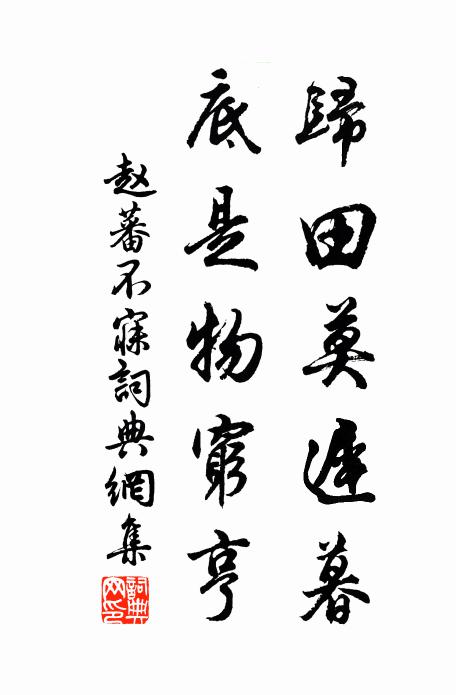 歸田莫遲暮
底是物窮亨
赵蕃不寐詞典網集
詞典網印